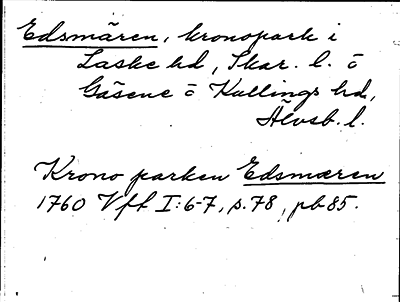 Edsmären, kronopark i
Laske hd, Skar. l. o
Gäsene o Kullings hd,
Älvsb. l.
Krono parken Edsmæren
1760 Vff I:6-7, s. 78, pb 85.